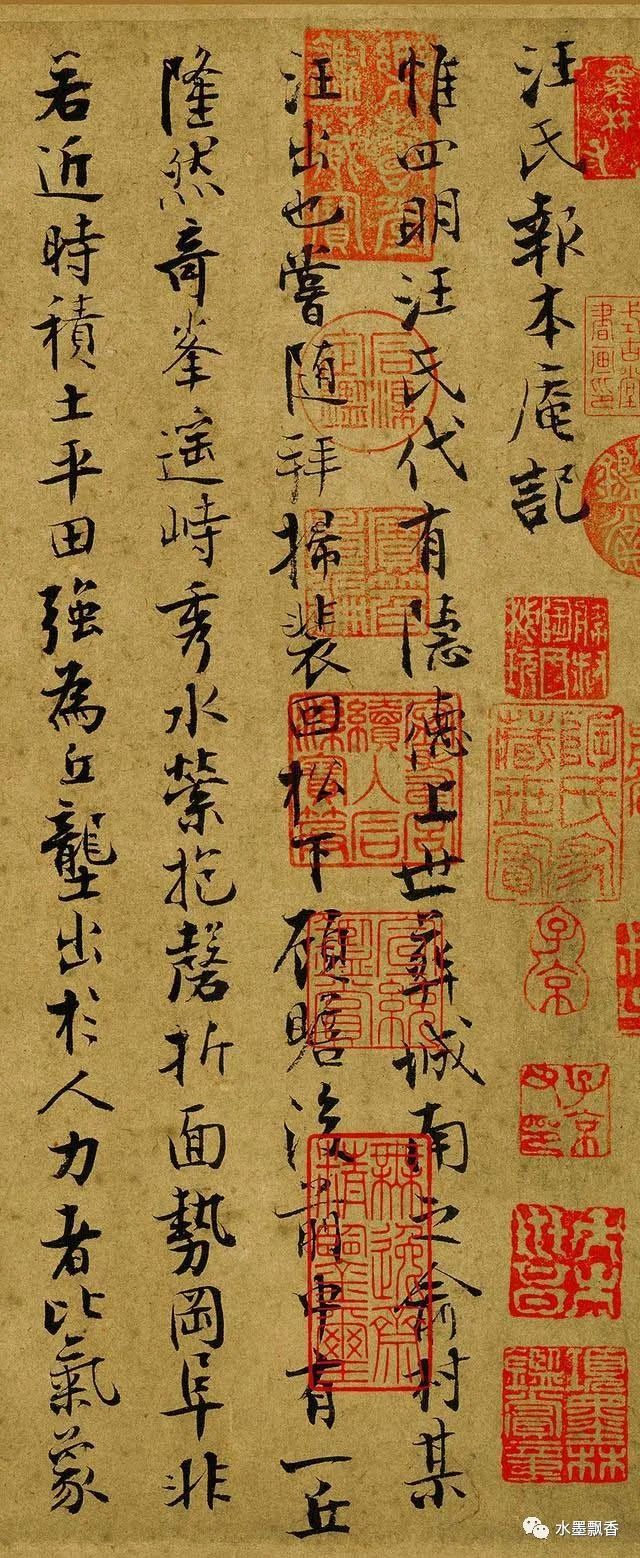 汪氏報本庵記
惟四明汪氏代有隱德上世葬城南之俞村某
汪出也嘗隨拜掃裴回松下顧瞻後前中有一丘
隆然奇峯遥峙秀水縈抱磬折面勢岡阜非
若近時積土平田強為丘壟出於人力者比氣象
子京
水墨飘香